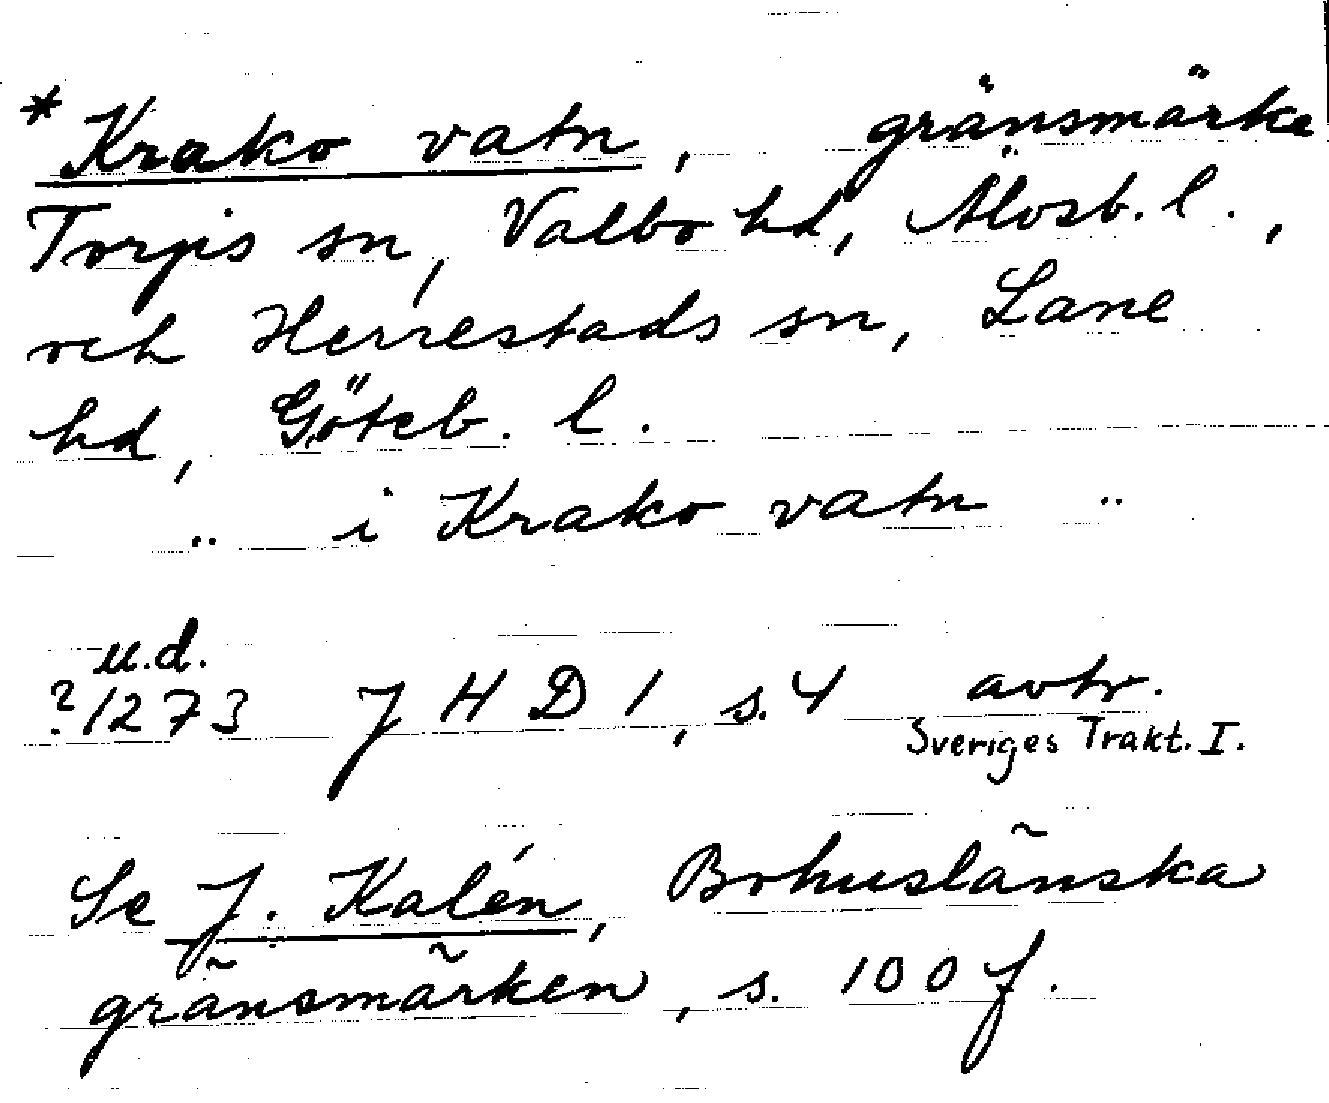 *Krako vatn, gränsmärke
Torps sn, Valbo hd, Älvsb. l.,
och Herrestads sn, Lane
hd, Göteb. l.
.. i Krako vatn ..
u.d.
?1273 J H D 1, s. 4 avtr.
Sveriges Trakt. I.
Se J. Kalén, Bohuslänska
gränsmärken, s. 100 f.